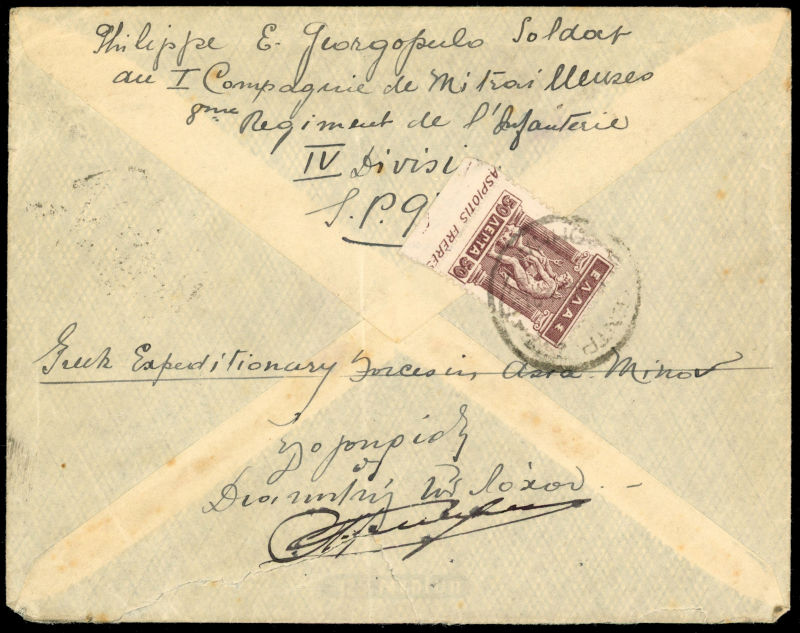 Philippe E. Georgopulo Soldat
au I Compagnie de Mitrailleuses
8me Regiment de l'Infanterie
IV Divisi
S.P. 9
ASPIOTIS FRÈRES
50 ΛΕΠΤΑ 50
ΕΛΛΑΣ
Greek Expeditionary Forces in Asia Minor
Διοικητής τοῦ λόχου